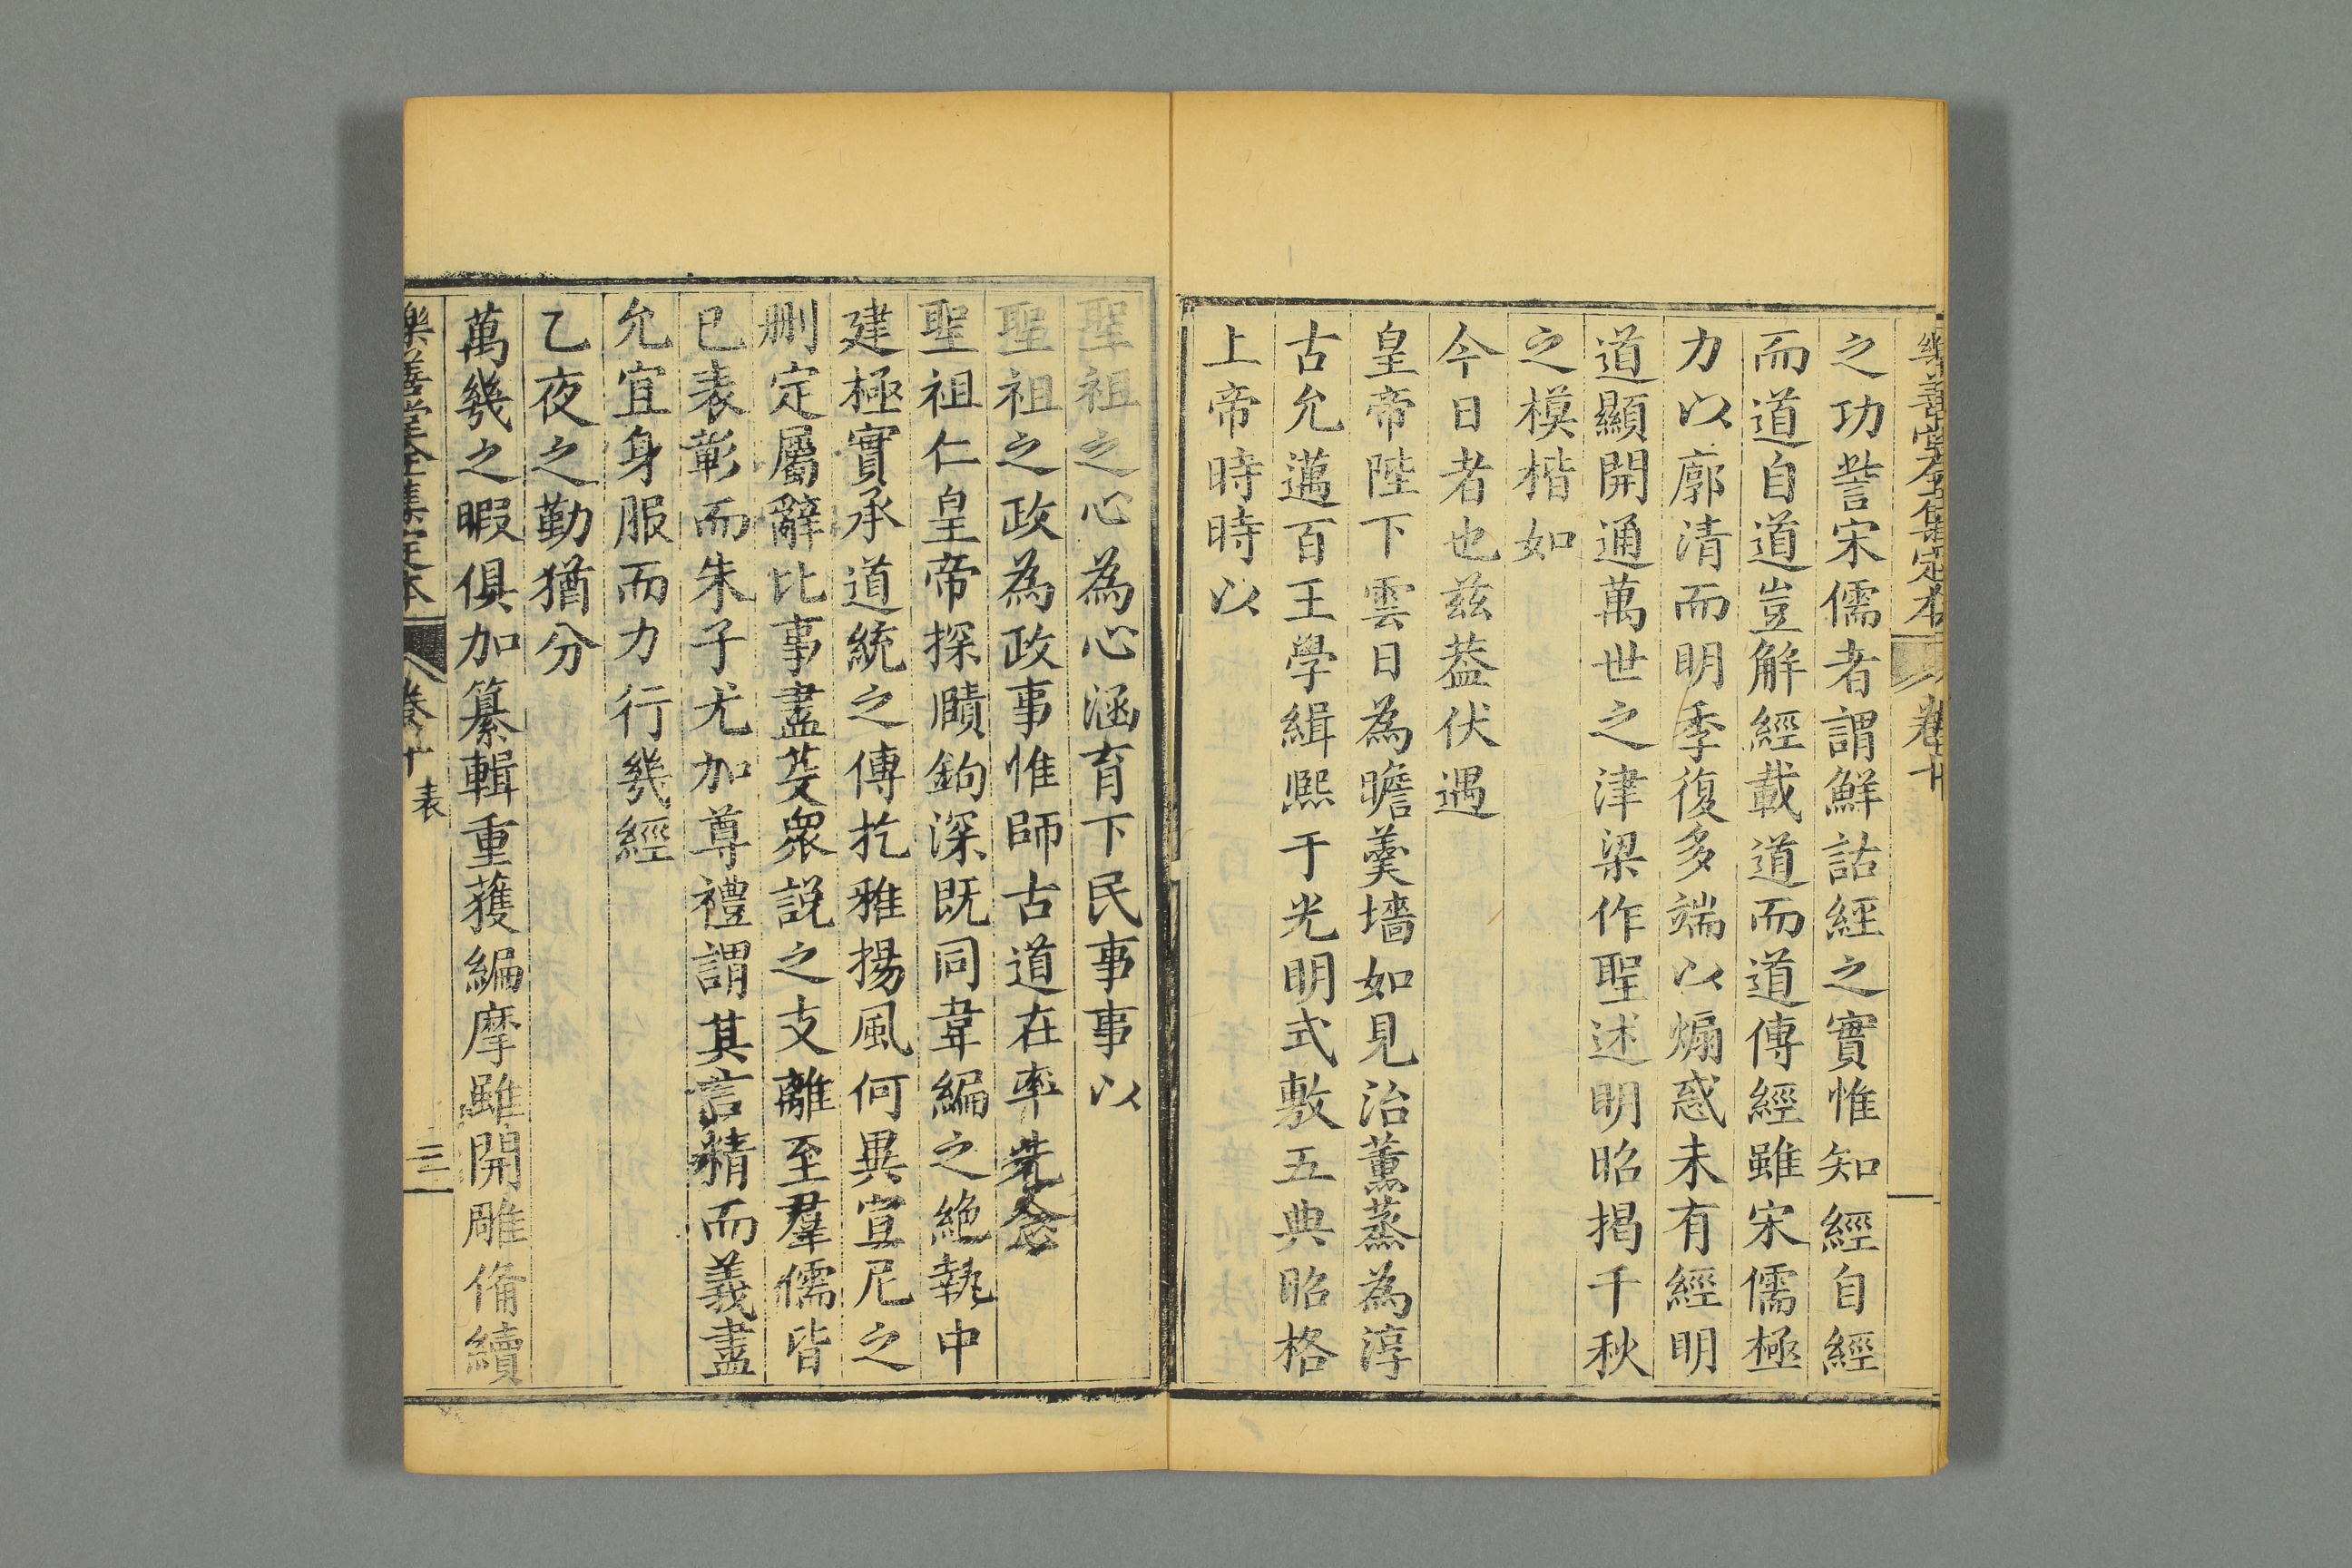 樂善堂全集定本 卷十
之功訾宋儒者謂鮮詁經之實惟知經自經
而道自道豈觧經載道而道傳經雖宋儒極
力以廓清而明季復多端以煽惑未有經明
道顯開通萬世之津梁作聖述明昭揭千秋
之模楷如
今日者也兹葢伏遇
皇帝陛下雲日為瞻羹墻如見治薰蒸為淳
古允邁百王學緝熙于光明式敷五典昭格
上帝時時以
聖祖之心為心涵育下民事事以
聖祖之政為政事惟師古道在率先念
聖祖仁皇帝探賾鉤深既同韋編之絶執中
建極實承道統之傳扢雅揚風何異宣尼之
刪定屬辭比事盡芟衆説之支離至羣儒皆
已表彰而朱子尤加尊禮謂其言精而義盡
允宜身服而力行幾經
乙夜之勤猶分
萬幾之暇俱加纂輯重獲編摩雖開雕備續
樂善堂全集定本 卷十 表 三